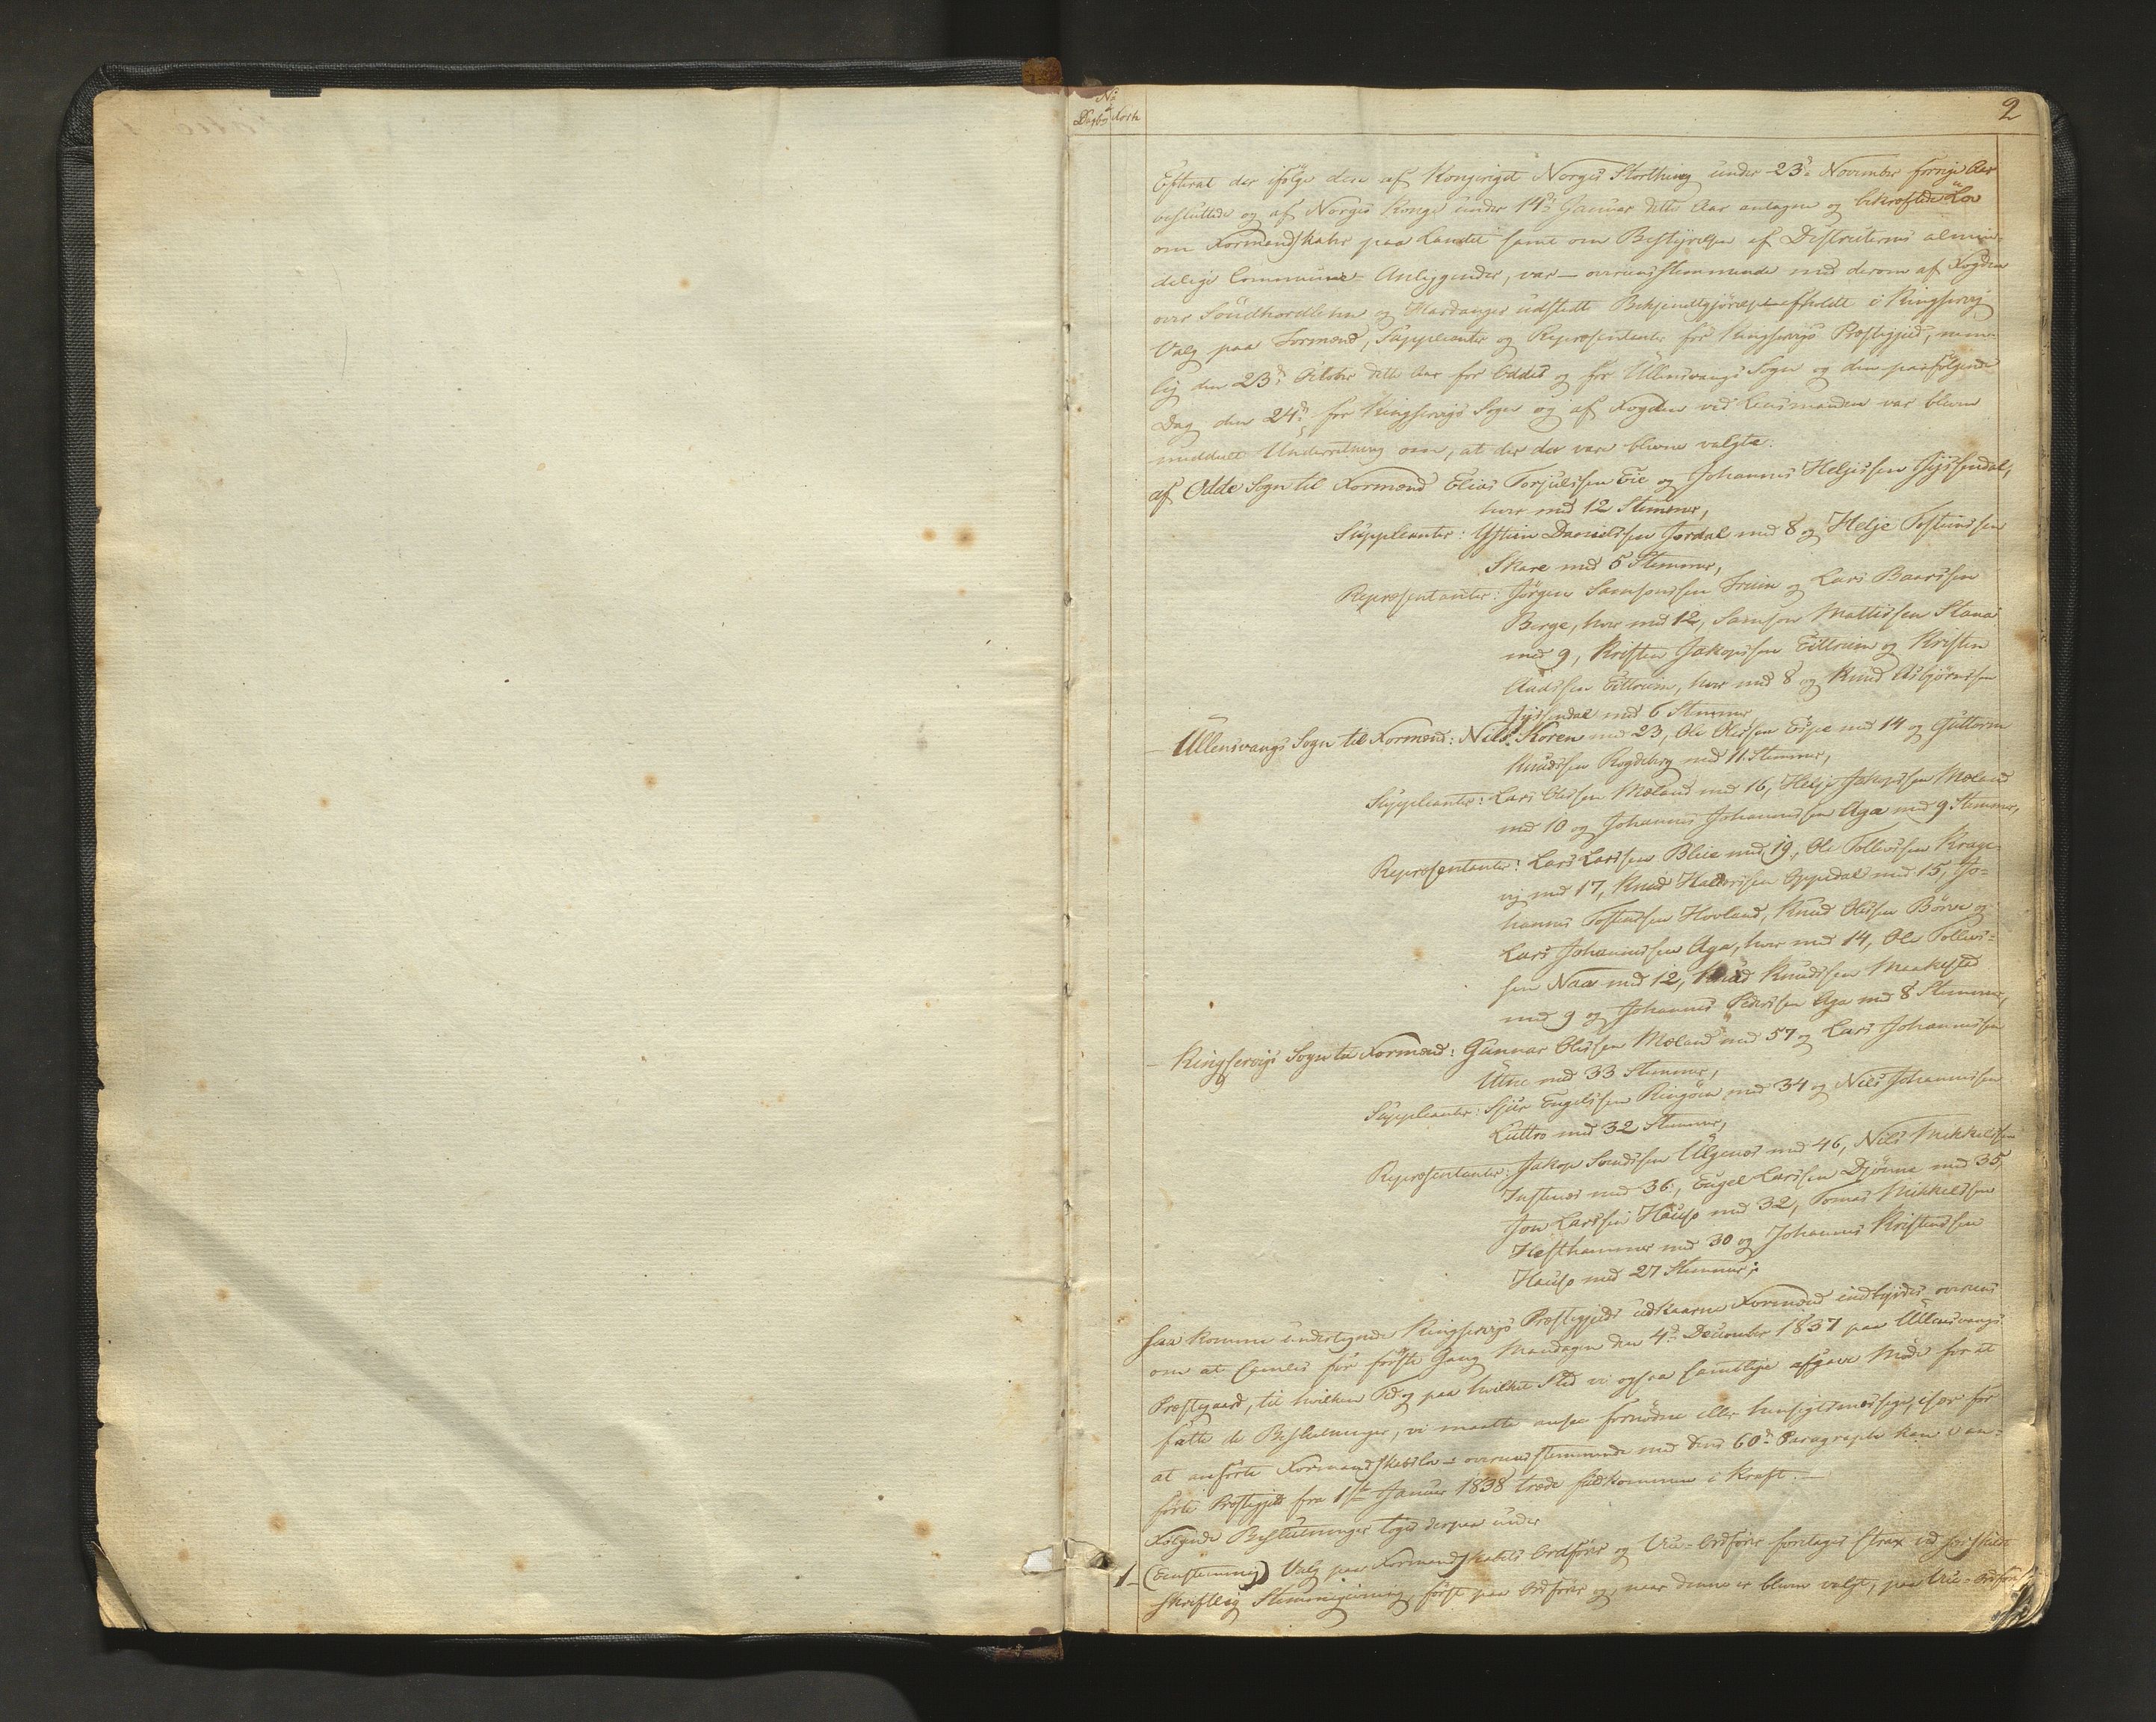 2
No
Dagbog
Efterat der ifölge den af Kongeriget Norges Storthing under 23de November forrige Aar
besluttede og af Norges Konge under 14de Januar dette Aar antagne og bekræftede Lov
om Formandskaber paa Landet samt om Bestyrelsen af Districternes almin-
delige Communal-Anliggender, var – overeensstemmende med derom af Fogden
over Söndhordlehn og Hardanger udstedte Bekjendtgjörelse – afholdt i Kingservig
Valg paa Formænd, Suppleanter og Repræsentanter for Kingservigs Præstegjeld, nem-
lig den 23de October dette Aar for Oddes og for Ullensvangs Sogn og den paafölgende
Dag den 24de for Kingservigs Sogn og af Fogden ved Lensmanden var bleven
meddeelt Underretning om, at der da vare blevne valgte:
af Odde Sogn til Formænd Elias Torjulssen Eie og Johannes Helgessen Jyssendal,
hver med 12 Stemmer,
Suppleanter: Östein Danielssen Jordal med 8 og Helje Tosteinssen
Skare med 5 Stemmer,
Repræsentanter: Jörgen Samsonssen Freim og Lars Baarssen
Berge, hver med 12, Samson Mattissen Stana
med 9, Kristen Jakopssen Eittreim og Kristen
Aadssen Eittreim, hver med 8 og Knud Asbjörnssen
Jyssendal med 6 Stemmer
– Ullensvangs Sogn til Formænd: Nils Koren med 23, Ole Olssen Espe med 14 og Guttorm
Knudssen Rogdeberg med 11 Stemmer,
Suppleanter: Lars Olssen Mæland med 16, Helje Jakopssen Mæland
med 10 og Johannes Johannessen Aga med 9 Stemmer,
Repræsentanter: Lars Larssen Bleie med 19, Ole Tollevssen Krage-
vig med 17, Knud Haldorssen Oppedal med 15, Jo-
hannes Tostenssen Hovland, Knud Olssen Börve og
Lars Johannessen Aga, hver med 14, Ole Tollevs-
sen Naa med 12, Knud Knudssen Maakestad
med 9 og Johannes Pederssen Aga med 8 Stemmer,
– Kingservigs Sogn til Formænd: Gunnar Olssen Mæland med 57 og Lars Johannessen
Utne med 33 Stemmer,
Suppleanter: Sjur Engelssen Ringöen med 34 og Nils Johannessen
Luttro med 32 Stemmer,
Repræsentanter: Jakop Svendssen Ulgenæs med 46, Nils Mikkelssen
Instenæs med 36, Engel Larssen Djönne med 35,
Jon Larssen Hauso med 32, Tomas Mikkelssen
Hesthammer med 30 og Johannes Kristenssen
Hauso med 27 Stemmer;
saa komme undertegnede Kingservigs Præstegjelds udkaarne Formænd indbyrdes overeens
om at samles for förste Gang Mandagen den 4de December 1837 paa Ullensvangs
Præstegaard, til hvilken Tid og paa hvilket Sted vi ogsaa samtlige afgave Möde for at
fatte de Beslutninger, vi maatte ansee fornödne eller hensigtsmæssige, især for
at anförte Formandskabslov – overeensstemmende med dens 60de Paragraph kan i an-
förte Præstegjeld fra 1ste Januar 1838 træde fuldkommen i Kraft. –
Fölgende Beslutninger toges derpaa under
1– (Eenstemmig) Valg paa Formandskabets Ordförer og Vice-Ordförer foretages strax ved
skriftlig Stemmegivning, först paa Ordförer og, naar denne er bleven valgt, paa Vice-Ordförer